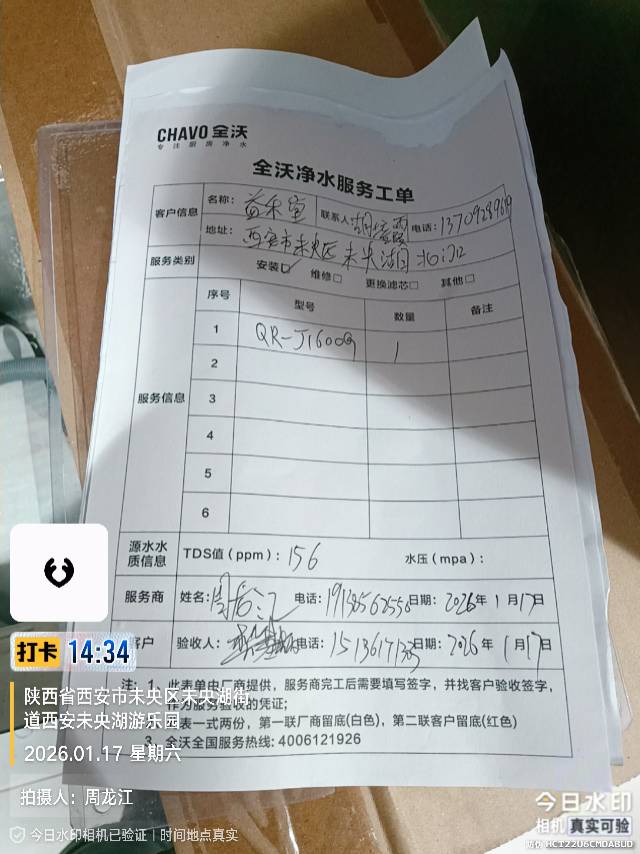 CHAVO 全沃
专注厨房净水
全沃净水服务工单
客户信息 名称: 益禾堂 联系人 电话:
地址: 西安市未央区未央湖北门口
服务类别 安装☑ 维修□ 更换滤芯□ 其他□
服务信息 序号 型号 数量 备注
1 QR-J1600G 1
2
3
4
5
6
源水水质信息 TDS值（ppm）: 156 水压（mpa）:
服务商 姓名: 周龙江 电话: 19138562556 日期: 2026年 1月17日
客户 验收人: 电话: 日期: 2026年 1月17日
注: 1、此表单由厂商提供，服务商完工后需要填写签字，并找客户验收签字，
作为服务验收的凭证;
表一式两份，第一联厂商留底(白色)，第二联客户留底(红色)
3、全沃全国服务热线: 4006121926
打卡 14:34
陕西省西安市未央区未央湖街
道西安未央湖游乐园
2026.01.17 星期六
拍摄人: 周龙江
今日水印相机已验证 | 时间地点真实
今日水印
相机 真实可验
防伪 HCT22U6CMDABUD